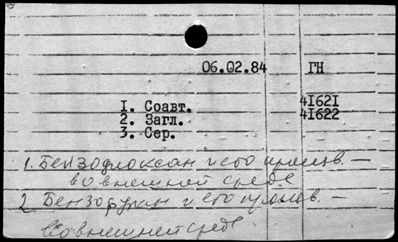 06.02.84 ГН
1. Соавт. 41621
2. Загл. 41622
3. Сер.
1. Бензодиоксан и его произв. –
во внешней среде
2 Бензофуран и его произв. –
Во внешней среде